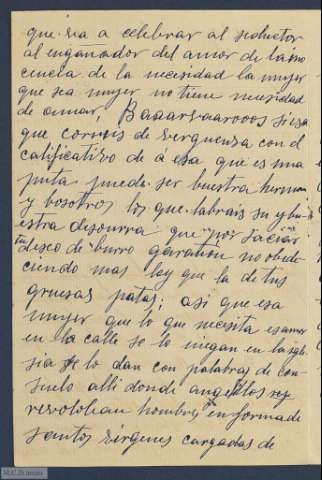 que sea a celebrar al seductor
al engañador del amor de la ino
cencia de la necesidad la mujer
que sea mujer no tiene necesidad
de amar, Baaarvaarooos si esa
que correis de verguenza con el
calificativo de á esa que es una
puta puede ser buestra herman
y bosotros los que labrais su y bu
estra desonrra que por saciar
tu deseo de burro garañon no obede
ciendo mas ley que la de tus
gruesas patas; asi que esa
mujer que lo que necesita es amor
en la calle se lo niegan en la igle
sia se lo dan con palabras de con
suelo alli donde angelitos
revolotean hombres en forma de
santos Virgenes cargadas de